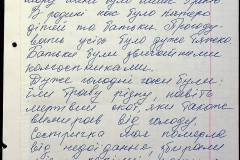 В родині нас було пятеро
дітей та батьки. Прокор-
мити усіх було дуже тяжко.
Батьки були звичайними
колгоспниками.
Дуже голодні часи були.
їли траву різну, навіть
мертвий скот, який також
вимирав від голоду.
Сестричка моя померла
від недоїдання,